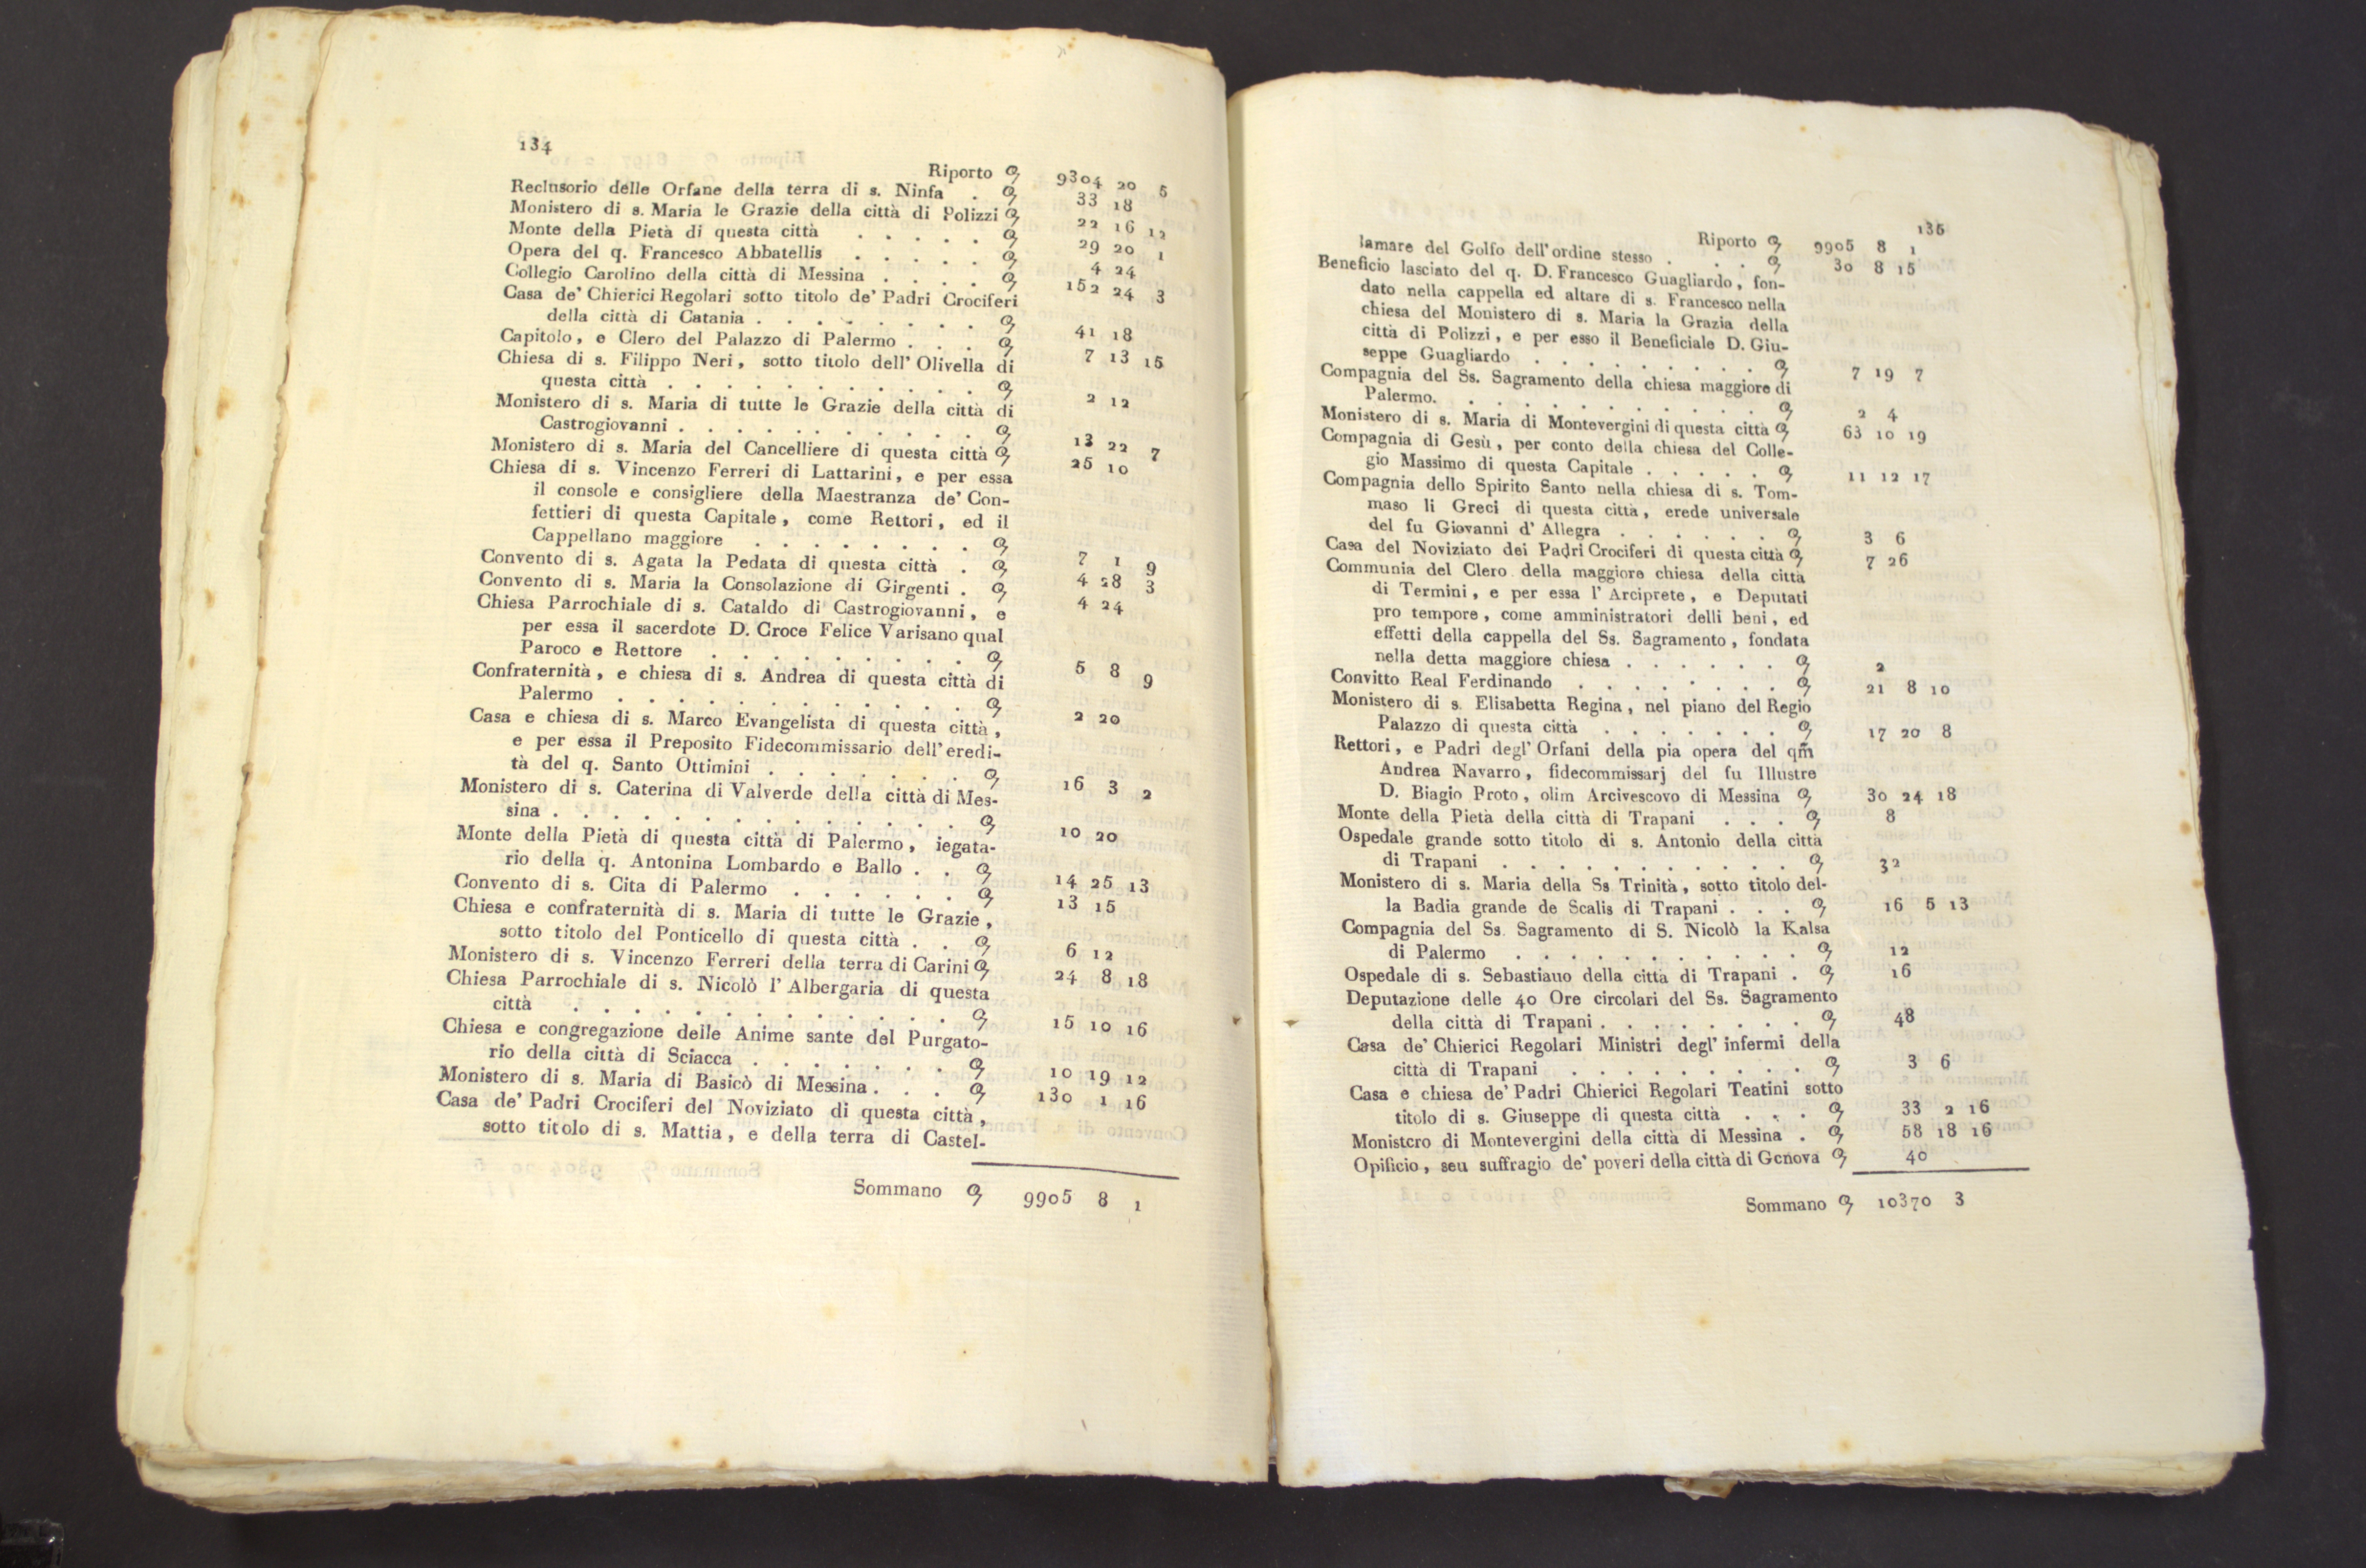 134
Riporto q 9304 20 5
Reclusorio delle Orfane della terra di s. Ninfa . q 33 18
Monistero di s. Maria le Grazie della città di Polizzi q 22 16 12
Monte della Pietà di questa città . . . . . q 29 20 1
Opera del q. Francesco Abbatellis . . . . . q 4 24
Collegio Carolino della città di Messina . . . . q 152 24 3
Casa de' Chierici Regolari sotto titolo de' Padri Crociferi
della città di Catania . . . . . . . . q 41 18
Capitolo, e Clero del Palazzo di Palermo . . . q 7 13 15
Chiesa di s. Filippo Neri, sotto titolo dell' Olivella di
questa città . . . . . . . . . . . q 2 12
Monistero di s. Maria di tutte le Grazie della città di
Castrogiovanni . . . . . . . . . . . q 13 22 7
Monistero di s. Maria del Cancelliere di questa città q 25 10
Chiesa di s. Vincenzo Ferreri di Lattarini, e per essa
il console e consigliere della Maestranza de' Con-
fettieri di questa Capitale, come Rettori, ed il
Cappellano maggiore . . . . . . . . q 7 1 9
Convento di s. Agata la Pedata di questa città . q 4 28 3
Convento di s. Maria la Consolazione di Girgenti . q 4 24
Chiesa Parrochiale di s. Cataldo di Castrogiovanni, e
per essa il sacerdote D. Croce Felice Varisano qual
Paroco e Rettore . . . . . . . . . q 5 8 9
Confraternità, e chiesa di s. Andrea di questa città di
Palermo . . . . . . . . . . . . q 2 20
Casa e chiesa di s. Marco Evangelista di questa città,
e per essa il Preposito Fidecommissario dell' eredi-
tà del q. Santo Ottimini . . . . . . . q 16 3 2
Monistero di s. Caterina di Valverde della città di Mes-
sina . . . . . . . . . . . . . . q 10 20
Monte della Pietà di questa città di Palermo, iegata-
rio della q. Antonina Lombardo e Ballo . . q 14 25 13
Convento di s. Cita di Palermo . . . . . . q 13 15
Chiesa e confraternità di s. Maria di tutte le Grazie,
sotto titolo del Ponticello di questa città . . q 6 12
Monistero di s. Vincenzo Ferreri della terra di Carini q 24 8 18
Chiesa Parrochiale di s. Nicolò l' Albergaria di questa
città . . . . . . . . . . . . . q 15 10 16
Chiesa e congregazione delle Anime sante del Purgato-
rio della città di Sciacca . . . . . . . q 10 19 12
Monistero di s. Maria di Basicò di Messina . . . q 130 1 16
Casa de' Padri Crociferi del Noviziato di questa città,
sotto titolo di s. Mattia, e della terra di Castel-
Sommano q 9905 8 1
135
Riporto q 9905 8 1
lamare del Golfo dell' ordine stesso . . . q 30 8 15
Beneficio lasciato del q. D. Francesco Guagliardo, fon-
dato nella cappella ed altare di s. Francesco nella
chiesa del Monistero di s. Maria la Grazia della
città di Polizzi, e per esso il Beneficiale D. Giu-
seppe Guagliardo . . . . . . . . q 7 19 7
Compagnia del Ss. Sagramento della chiesa maggiore di
Palermo. . . . . . . . . . . . q 2 4
Monistero di s. Maria di Montevergini di questa città q 63 10 19
Compagnia di Gesù, per conto della chiesa del Colle-
gio Massimo di questa Capitale . . . . . q 11 12 17
Compagnia dello Spirito Santo nella chiesa di s. Tom-
maso li Greci di questa città, erede universale
del fu Giovanni d' Allegra . . . . . . q 3 6
Casa del Noviziato dei Padri Crociferi di questa città q 7 26
Communia del Clero della maggiore chiesa della città
di Termini, e per essa l' Arciprete, e Deputati
pro tempore, come amministratori delli beni, ed
effetti della cappella del Ss. Sagramento, fondata
nella detta maggiore chiesa . . . . . . q 2
Convitto Real Ferdinando . . . . . . . . q 21 8 10
Monistero di s. Elisabetta Regina, nel piano del Regio
Palazzo di questa città . . . . . . . q 17 20 8
Rettori, e Padri degl' Orfani della pia opera del qm̃
Andrea Navarro, fidecommissarj del fu Illustre
D. Biagio Proto, olim Arcivescovo di Messina q 30 24 18
Monte della Pietà della città di Trapani . . . q 8
Ospedale grande sotto titolo di s. Antonio della città
di Trapani . . . . . . . . . . . q 32
Monistero di s. Maria della Ss Trinità, sotto titolo del-
la Badia grande de Scalis di Trapani . . . q 16 5 13
Compagnia del Ss. Sagramento di S. Nicolò la Kalsa
di Palermo . . . . . . . . . . . q 12
Ospedale di s. Sebastiano della città di Trapani . q 16
Deputazione delle 40 Ore circolari del Ss. Sagramento
della città di Trapani . . . . . . . . q 48
Casa de' Chierici Regolari Ministri degl' infermi della
città di Trapani . . . . . . . . . q 3 6
Casa e chiesa de' Padri Chierici Regolari Teatini sotto
titolo di s. Giuseppe di questa città . . . q 33 2 16
Monistero di Montevergini della città di Messina . q 58 18 16
Opificio, seu suffragio de' poveri della città di Genova q 40
Sommano q 10370 3